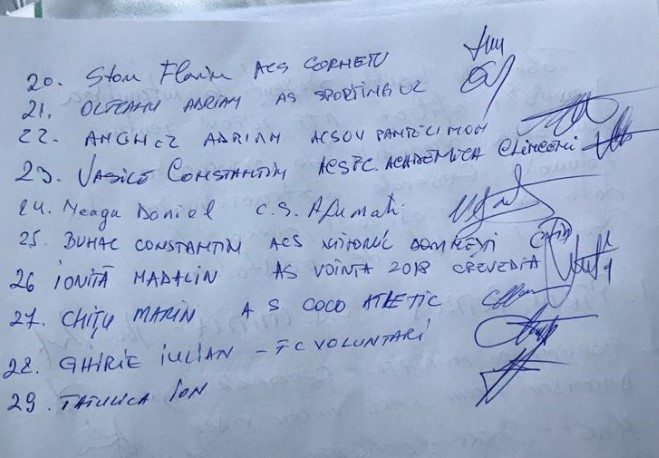 20. Stan Florin ACS CORNETU
21. OLTEANU ADRIAN AS SPORTING
22. ANGHEL ADRIAN ACSOV PANTELIMON
23. VASILE CONSTANTIN ACSFC. ACADEMICA CLINCENI
24. Neagu Daniel C.S. Afumati
25. BUHAC CONSTANTIN ACS VIITORUL DOMNESTI
26 IONITĂ MADALIN AS VOINTA 2018 CREVEDIA
27. CHIȚU MARIN A S COCO ATLETIC
28. GHIRIE IULIAN - FC VOLUNTARI
29. ION